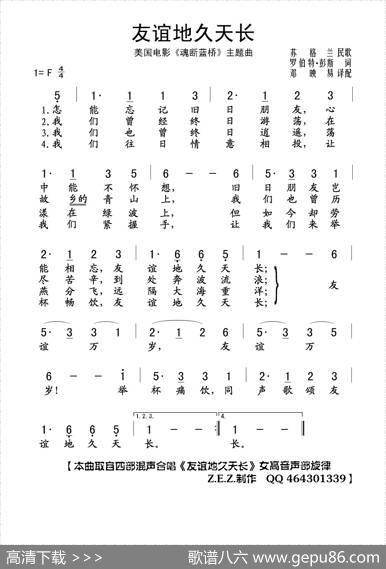 友谊地久天长
美国电影《魂断蓝桥》主题曲
苏格兰民歌
罗伯特·彭斯 词
邓映易 译配
1=F 4/4
5 | 1· 1 1 3 | 2· 1 2 3 | 1· 1 3 5 |
1.怎 能忘记旧日朋友,心
2.我们 曾经终日游荡在
3.我们 也曾终日逍遥,荡
4.我们 往日情意相投,让
6 - - 6 | 5· 3 3 1 |
中能不怀想, 旧日朋友岂
故乡的青山上, 我们也曾历
漾在绿波上, 但如今却劳
我们紧握手, 让我们来举
2· 1 2 3 | 1· 6 6 5 | 1 - - 6 |
能相忘,友谊地久天长;
尽苦辛,到处奔波流浪;
燕分飞,远隔大海重洋;
杯畅饮,友谊地久天长;
友
5· 3 3 1 | 2· 1 2 6 | 5· 3 3 5 |
谊万岁,友谊万
6 - - 1 | 5· 3 3 1 | 2· 1 2 3 |
岁! 举杯痛饮,同声歌颂友
1· 6 6 5 | 1 - - :| 1 - - ‖
1.2.3.
4.
谊地久天长。 长。
【本曲取自四部混声合唱《友谊地久天长》女高音声部旋律
Z.E.Z.制作 QQ 464301339】
高清下载 >>> 歌谱八六 www.gepu86.com